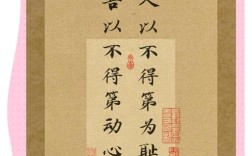 人以不得第为耻
吾以不得第动心